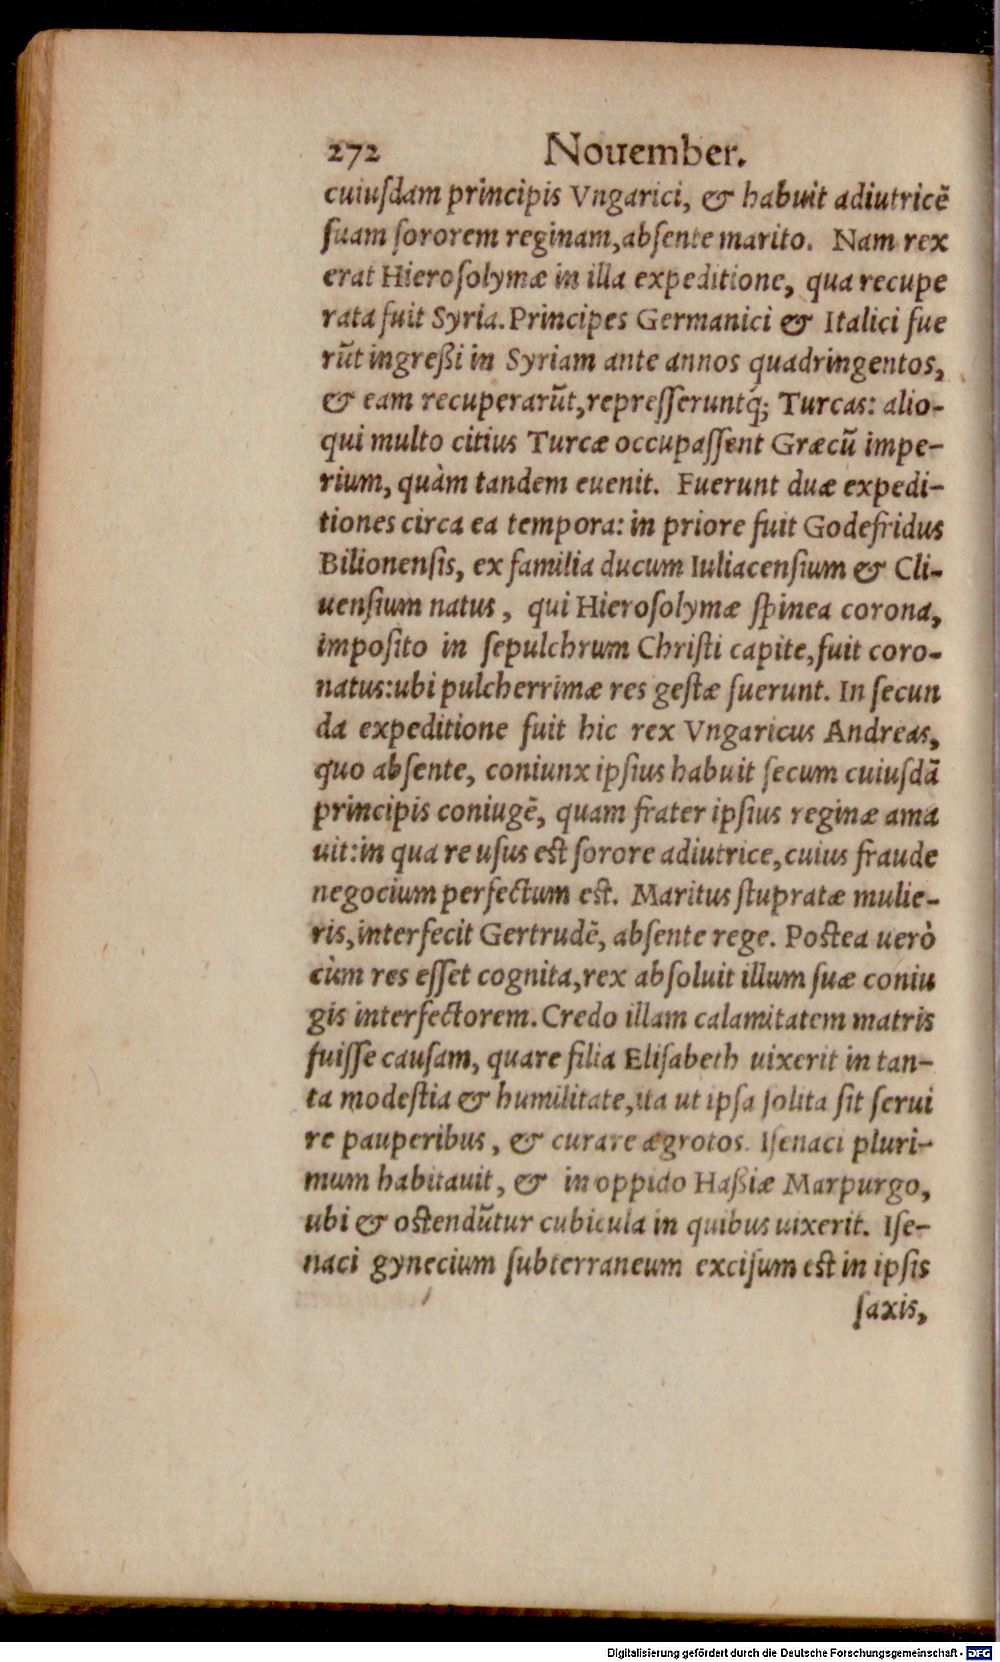 272 Nouember.
cuiuſdam principis Vngarici, & habuit adiutricē
ſuam ſororem reginam, abſente marito. Nam rex
erat Hieroſolymæ in illa expeditione, qua recupe
rata fuit Syria. Principes Germanici & Italici fue
rūt ingreßi in Syriam ante annos quadringentos,
& eam recuperarūt, repreſſeruntq́; Turcas: alio-
qui multo citius Turcæ occupaſſent Græcū impe-
rium, quàm tandem euenit. Fuerunt duæ expedi-
tiones circa ea tempora: in priore fuit Godefridus
Bilionenſis, ex familia ducum Iuliacenſium & Cli-
uenſium natus, qui Hieroſolymæ ſpinea corona,
impoſito in ſepulchrum Chriſti capite, fuit coro-
natus: ubi pulcherrimæ res geſtæ fuerunt. In ſecun
da expeditione fuit hic rex Vngaricus Andreas,
quo abſente, coniunx ipſius habuit ſecum cuiuſdā
principis coniugē, quam frater ipſius reginæ ama
uit: in qua re uſus eſt ſorore adiutrice, cuius fraude
negocium perfectum eſt. Maritus ſtupratæ mulie-
ris, interfecit Gertrudē, abſente rege. Poſtea uerò
cùm res eſſet cognita, rex abſoluit illum ſuæ coniu
gis interfectorem. Credo illam calamitatem matris
fuiſſe cauſam, quare filia Eliſabeth uixerit in tan-
ta modeſtia & humilitate, ita ut ipſa ſolita ſit ſerui
re pauperibus, & curare ægrotos. Iſenaci pluri-
mum habitauit, & in oppido Haßiæ Marpurgo,
ubi & oſtendūtur cubicula in quibus uixerit. Iſe-
naci gynecium ſubterraneum exciſum eſt in ipſis
ſaxis,
Digitalisierung gefördert durch die Deutsche Forschungsgemeinschaft - DFG